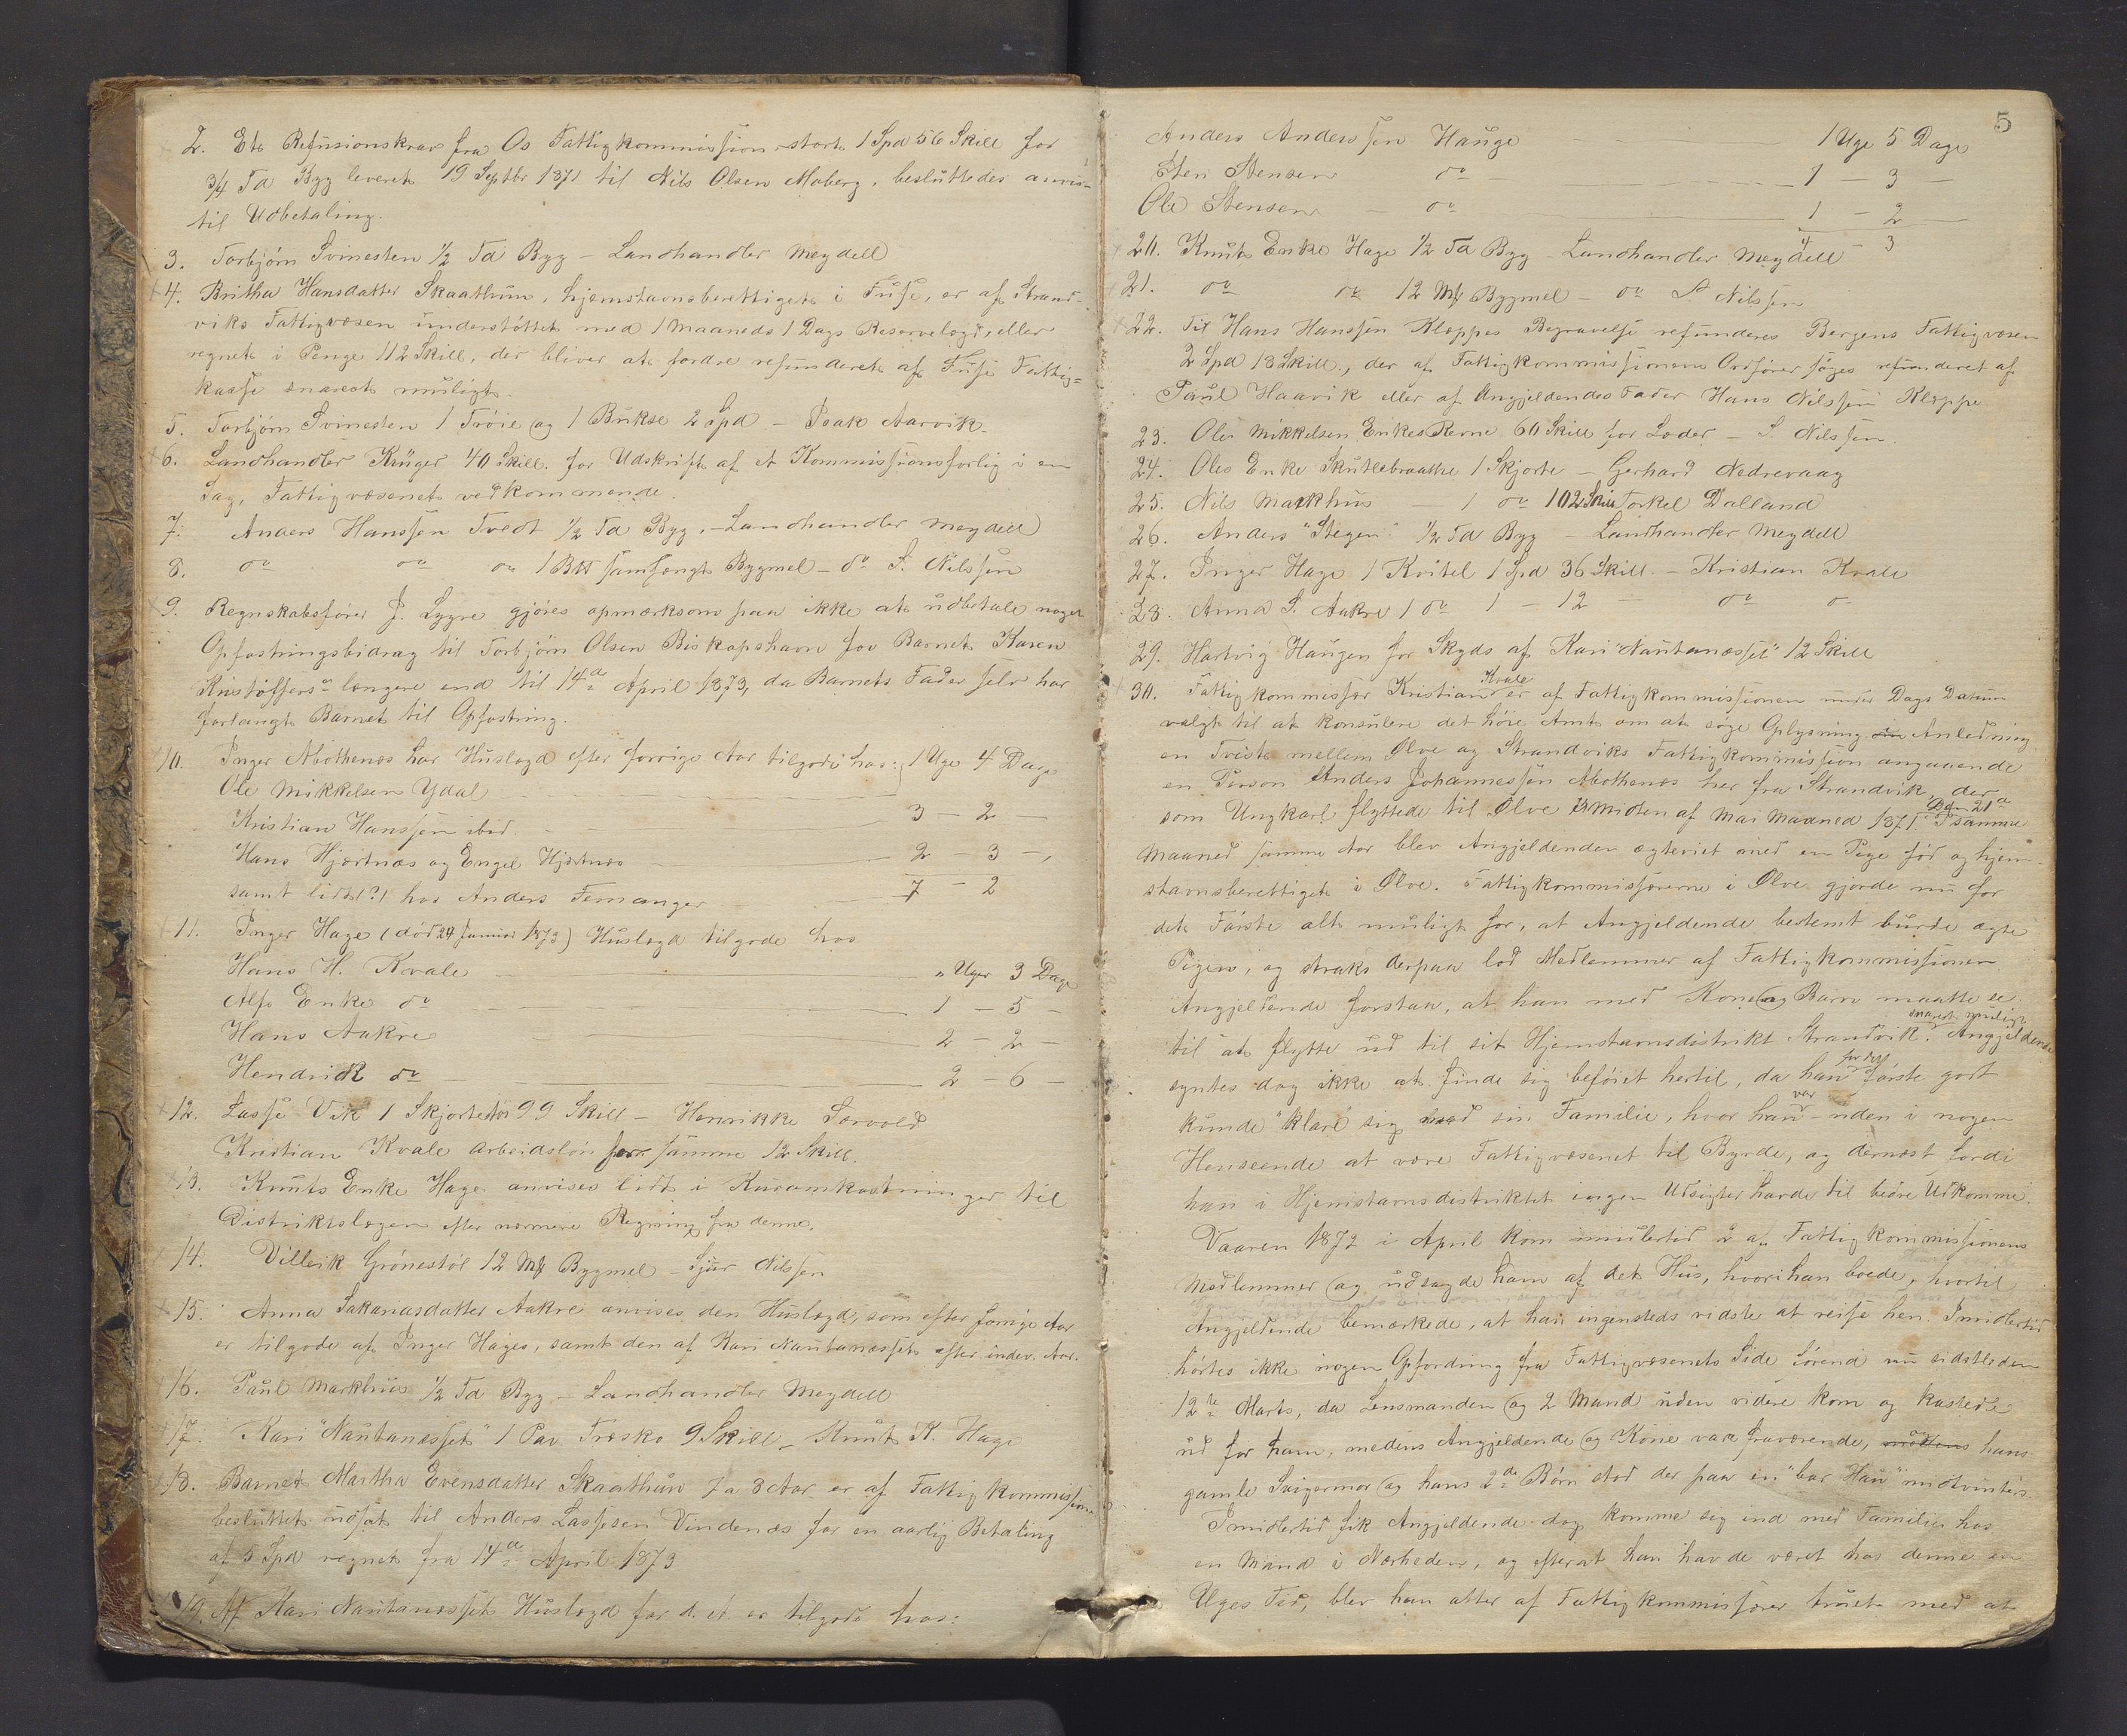 2. Et Refusionskrav fra Os Fattigkommission stort 1 Spd 56 Skill for
3/4 Td Byg leveret 19 Septbr 1871 til Nils Olsen Moberg, besluttedes anvis-
til Udbetaling.
3. Torbjörn Svinesten 1/2 Td Byg - Landhandler Meydell
4. Britha Hansdatter Skaathun, hjemstavnsberettiget i Fuse, er af Strand-
viks Fattigvæsen understöttet med 1 Maaneds 1 Dags Reservelægd, eller
regnet i Penge 112 Skill, der bliver at fordre refunderet af Fuse Fattig=
kasse snarest muligt.
5. Torbjörn Svinesten 1 Tröie og 1 Bukse 2 Spd - Isak Aarvik.
6. Landhandler Krüger 40 Skill. for Udskrift af et Kommissionsforlig i en
Sag, Fattigvæsenet vedkommende.
7. Anders Hanssen Tvedt 1/2 Td Byg, - Landhandler Meydell
8. do do do 1 Btt samfængt Bygmel - do S. Nilssen
9. Regnskabsförer J. Lygre gjöres opmærksom paa ikke at udbetale noget
Opfostringsbidrag til Torbjörn Olsen Biskopshavn for Barnet Karen
Kristoffersdr længere end til 14de April 1873, da Barnets Fader selv har
forlangt Barnet til Opfostring.
10. Inger Mothenes har Huslægd efter forrige Aar tilgode hos:
Ole Mikkelsen Ydal 1 Uge 4 Dage
Kristian Hanssen ibid 3 - 2 -
Hans Hjertnæs og Engel Hjertnæs 2 - 3 -
samt lidt(?) hos Anders Femanger 7 - 2
11. Inger Hage (död 24 Junior 1873) Huslægd tilgode hos
Hans H. Kvale " Uger 3 Dage
Alfs Enke do 1 - 5 -
Hans Aakre 2 - 2 -
Hendrik do 2 - 6 -
12. Lasse Vik 1 Skjortetöi 99 Skill - Henrikke Sævold
Kristian Kvale Arbeidslön for samme 12 Skill.
13. Knuts Enke Hage anvises lidt i Kuromkostninger til
Distriktslægen efter nærmere Regning fra denne.
14. Villeik Grönestöl 12 Mk Bygmel - Sjur Nilssen
15. Anna Sakariasdatter Aakre anvises den Huslægd, som efter forrige Aar
er tilgode af Inger Hages, samt den af Kari Nautanæsset efter indev. Aar.
16. Paul Markhus 1/2 Td Byg - Landhandler Meydell
17. Kari "Nautanæsset" 1 Par Træsko 9 Skill - Knut K. Hage
18. Barnet Martha Evensdatter Skaathun 7 a 8 Aar er af Fattigkommissionen
besluttet udsat til Anders Lassesen Vindenes for en aarlig Betaling
af 5 Spd regnet fra 14de April 1873
19. Af Kari Nautanæssets Huslægd for d. A. er tilgode hos:
5
Anders Anderssen Hauge 1 Uge 5 Dage
Sten Stensen do 1 - 3 -
Ole Stensen - do 1 - 2 -
4 - 3
20. Knuts Enke Hage 1/2 Td Byg - Landhandler Meydell
21. do do 12 Mk Bygmel - do S. Nilssen
22. Til Hans Hanssen Kleppes Begravelse refunderes Bergens Fattigvæsen
2 Spd 18 Skill., der af Fattigkommissionens Ordförer söges refunderet af
Paul Haavik eller af Angjeldendes Fader Hans Nilssen Kleppe
23. Ole Mikkelsen Enkes Rerne 60 Skill for Læder - S. Nilssen
24. Oles Enke Skutlebraathe 1 Skjorte - Gerhard Nedrevaag
25. Nils Markhus - 1 do 102 Skill Torkel Dalland
26. Anders "Stegen" 1/2 Td Byg - Landhandler Meydell
27. Inger Hage 1 Kvitel 1 Spd 36 Skill - Kristian Kvale
28. Anna S. Aakre 1 do 1 - 12 - do do
29. Hartvig Haugen for Skyds af Kari "Nautanæsset" 12 Skill
30. Fattigkommissær Kristian Kvale er af Fattigkommissionen under Dags Datum
valgt til at konsulere det höie Amt om at söge Oplysning i Anledning
en Tvist mellem Ølve og Strandviks Fattigkommission angaaende
en Person Anders Johannessen Mothenes her fra Strandvik, der
som Ungkarl flyttede til Ølve i Midten af Mai Maaned 1871. Den 21de I samme
Maaned samme Aar blev Angjeldenden ægteviet med en Pige föd og hjem-
stavnsberettiget i Ølve. Fattigkommissærerne i Ølve gjorde nu for
det Förste alt muligt for, at Angjeldende bestemt burde ægte
Pigen, og straks derpaa lod Medlemmer af Fattigkommissionen
Angjeldende forstaa, at han med Kone og Barn maatte se
til at flytte ud til sit Hjemstavnsdistrikt Strandvik snarest muligt. Angjeldende
syntes dog ikke at finde sig beföiet hertil, da han for det förste godt
kunde "klare" sig med sin Familie, hvor han var - uden i nogen
Henseende at være Fattigvæsenet til Byrde, og dernæst fordi
han i Hjemstavnsdistriktet ingen Udsigter havde til bedre Udkomme.
Vaaren 1872 i April kom imidlertid 2 af Fattigkommissionens
Medlemmer og udsagde ham af det Hus, hvori han boede, hvortil
Angjeldende bemærkede, at han ingensteds vidste at reise hen. Imidlertid
hörtes ikke nogen Opfordring fra Fattigvæsenets Side förend nu sidstleden
12te Marts, da Lensmanden og 2 Mand uden videre kom og kastede
ud for ham, medens Angjeldende og Kone var fraværende, og hans
gamle Svigermor og hans 2de Börn stod der paa en "bar Hau" midtvinters
Imidlertid fik Angjeldende dog komme sig ind med Familie hos
en Mand i Nærheden, og efterat han havde været hos denne en
Uges Tid, blev han atter af Fattigkommissærer truet med at